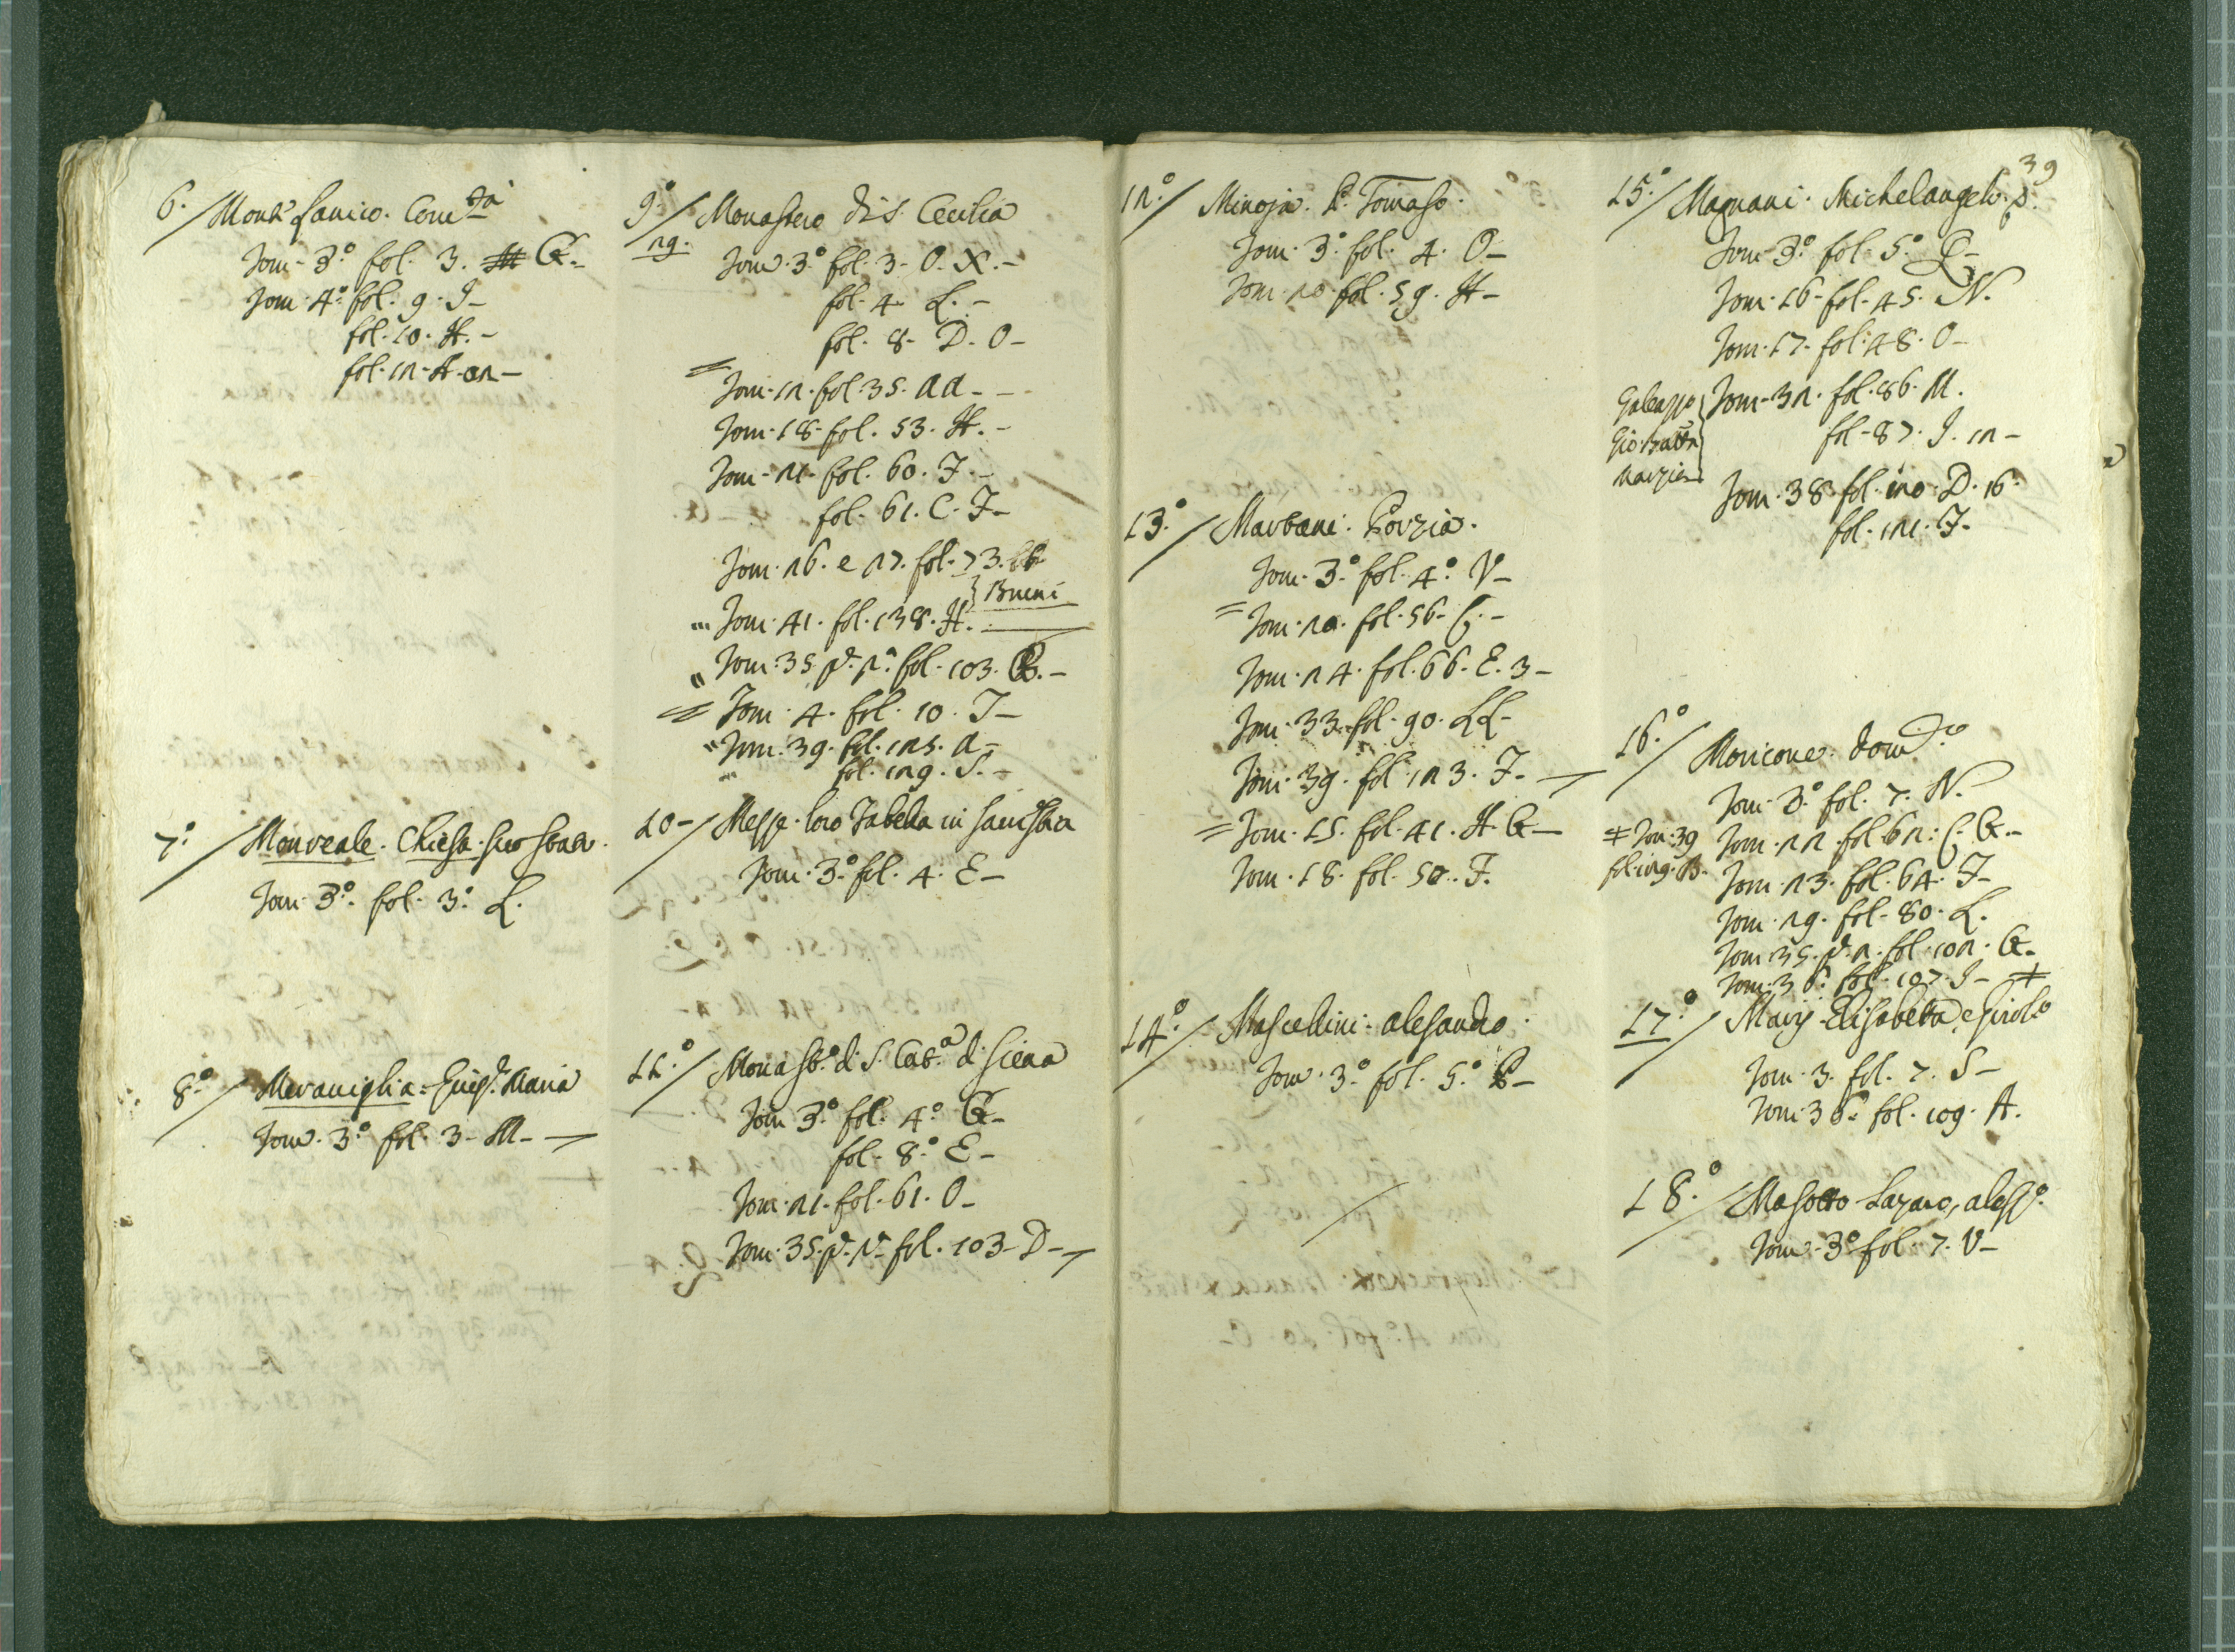 6. Monte Fanico. Com.tà
Tom. 3.º fol. 3. G.
Tom. 4.º fol. 9. I
fol. 10. H.
fol. 12. A. 02
7.º Monreale. Chiesa. suo
Tom. 3.º fol. 3.º L.
8.º Meraviglia. Maria
Tom. 3.º fol. 3. M
9.º Monastero di S. Cecilia
29. Tom. 3.º fol. 3. O. X.
fol. 4. L.
fol. 8. D. O
Tom. 12. fol. 35. aa
Tom. 18. fol. 53. H.
Tom. 21. fol. 60. F.
fol. 61. C. F
Tom. 26. e 27. fol. 73. bb
} Bueni
Tom. 41. fol. 138. H.
Tom. 35. p.e 2.ª fol. 103. B.
Tom. 4. fol. 10. I
Tom. 39. fol. 125. a
fol. 129. S.
10 Messe. loro Tabella in
Tom. 3.º fol. 4. E
11.º Monast.º di S. Cat.ª di Siena
Tom. 3.º fol. 4.º G
fol. 8.º E
Tom. 21. fol. 61. O
Tom. 35. p.e 2.ª fol. 103. D
39
12.º Minoja. P. Tomaso.
Tom. 3.º fol. 4. O
Tom. 20. fol. 59. H
13.º Marbani. Porzia.
Tom. 3.º fol. 4.º V
Tom. 20. fol. 56. C.
Tom. 24. fol. 66. E. 3
Tom. 33. fol. 90. LL
Tom. 39. fol. 123. F.
Tom. 15. fol. 41. H. G
Tom. 18. fol. 50. F.
14.º Mascellini. alesandro.
Tom. 3.º fol. 5.º B
15.º Magnani. Michelangelo. p.
Tom. 3.º fol. 5.º Q
Tom. 16. fol. 45. N.
Tom. 17. fol. 48. O
Galeazzo Tom. 32. fol. 86. M.
Gio: Batta fol. 87. I. 12
Marzio Tom. 38. fol. 120. D. 16.
fol. 121. F.
16.º Moricone. Dom.co
Tom. 3.º fol. 7. N.
Tom. 22. fol. 62. C. G.
# Tom. 39
fol. 129. B.
Tom. 23. fol. 64. F
Tom. 29. fol. 80. L.
Tom. 35. p.e 2. fol. 102. G.
Tom. 36. fol. 107. I #
17.º Marij. Elisabetta, e Girol.o
Tom. 3. fol. 7. S
Tom. 36. fol. 109. A.
18.º Masotto Lazaro, aless.o
Tom. 3.º fol. 7. V